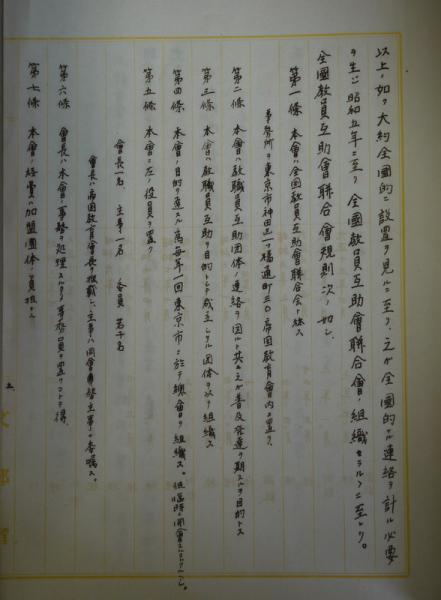 以上ノ如ク大約全國的ニ設置ヲ見ルニ至リ、之ガ全國的ナル連絡ヲ計ル必要
ヲ生ジ昭和五年ニ至リ全國教員互助會聯合會ノ組織セラルヽニ至レリ。
全國教員互助會聯合會規則次ノ如シ、
第一條　本會ハ全國教員互助會聯合会ト称ス
事務所ヲ東京市神田區一ツ橋通町三〇帝國教育會内ニ置ク、
第二條　本會ハ教職員互助団体ノ連絡ヲ図ルト共ニ之ガ普及発達ヲ期スルヲ目的トス
第三條　本會ハ教職員互助ヲ目的トシテ成立シタル団体ヲ以テ組織ス
第四條　本會ノ目的ヲ達スル為毎年一回東京市ニ於テ總會ヲ組織ス。但臨時ニ開會スルコトアルベシ。
第五條　本會ニ左ノ役員ヲ置ク
會長一名　主事一名　委員　若干名
會長ハ帝國教育會長ヲ推戴シ、主事ハ同會主事ニ委嘱ス。
第六條　會長ハ本會ノ事務ヲ処理スルタメ事務員ヲ置クコトヲ得、
第七條　本會ノ経費ハ加盟團体ノ負担トス